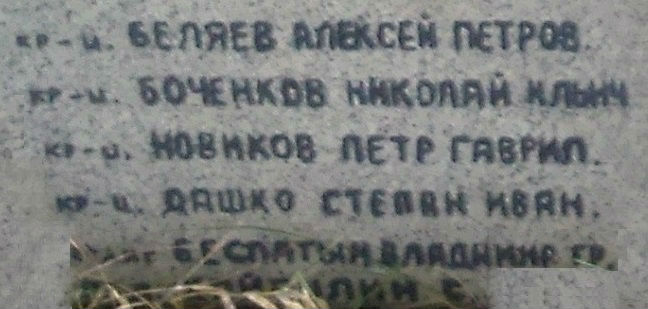 кр-ц. БЕЛЯЕВ АЛЕКСЕЙ ПЕТРОВ.
кр-ц. БОЧЕНКОВ НИКОЛАЙ ИЛЬИЧ
кр-ц. НОВИКОВ ПЕТР ГАВРИЛ.
кр-ц. ДАШКО СТЕПАН ИВАН.
БЕСПАТЫЙ ВЛАДИМИР ГР.